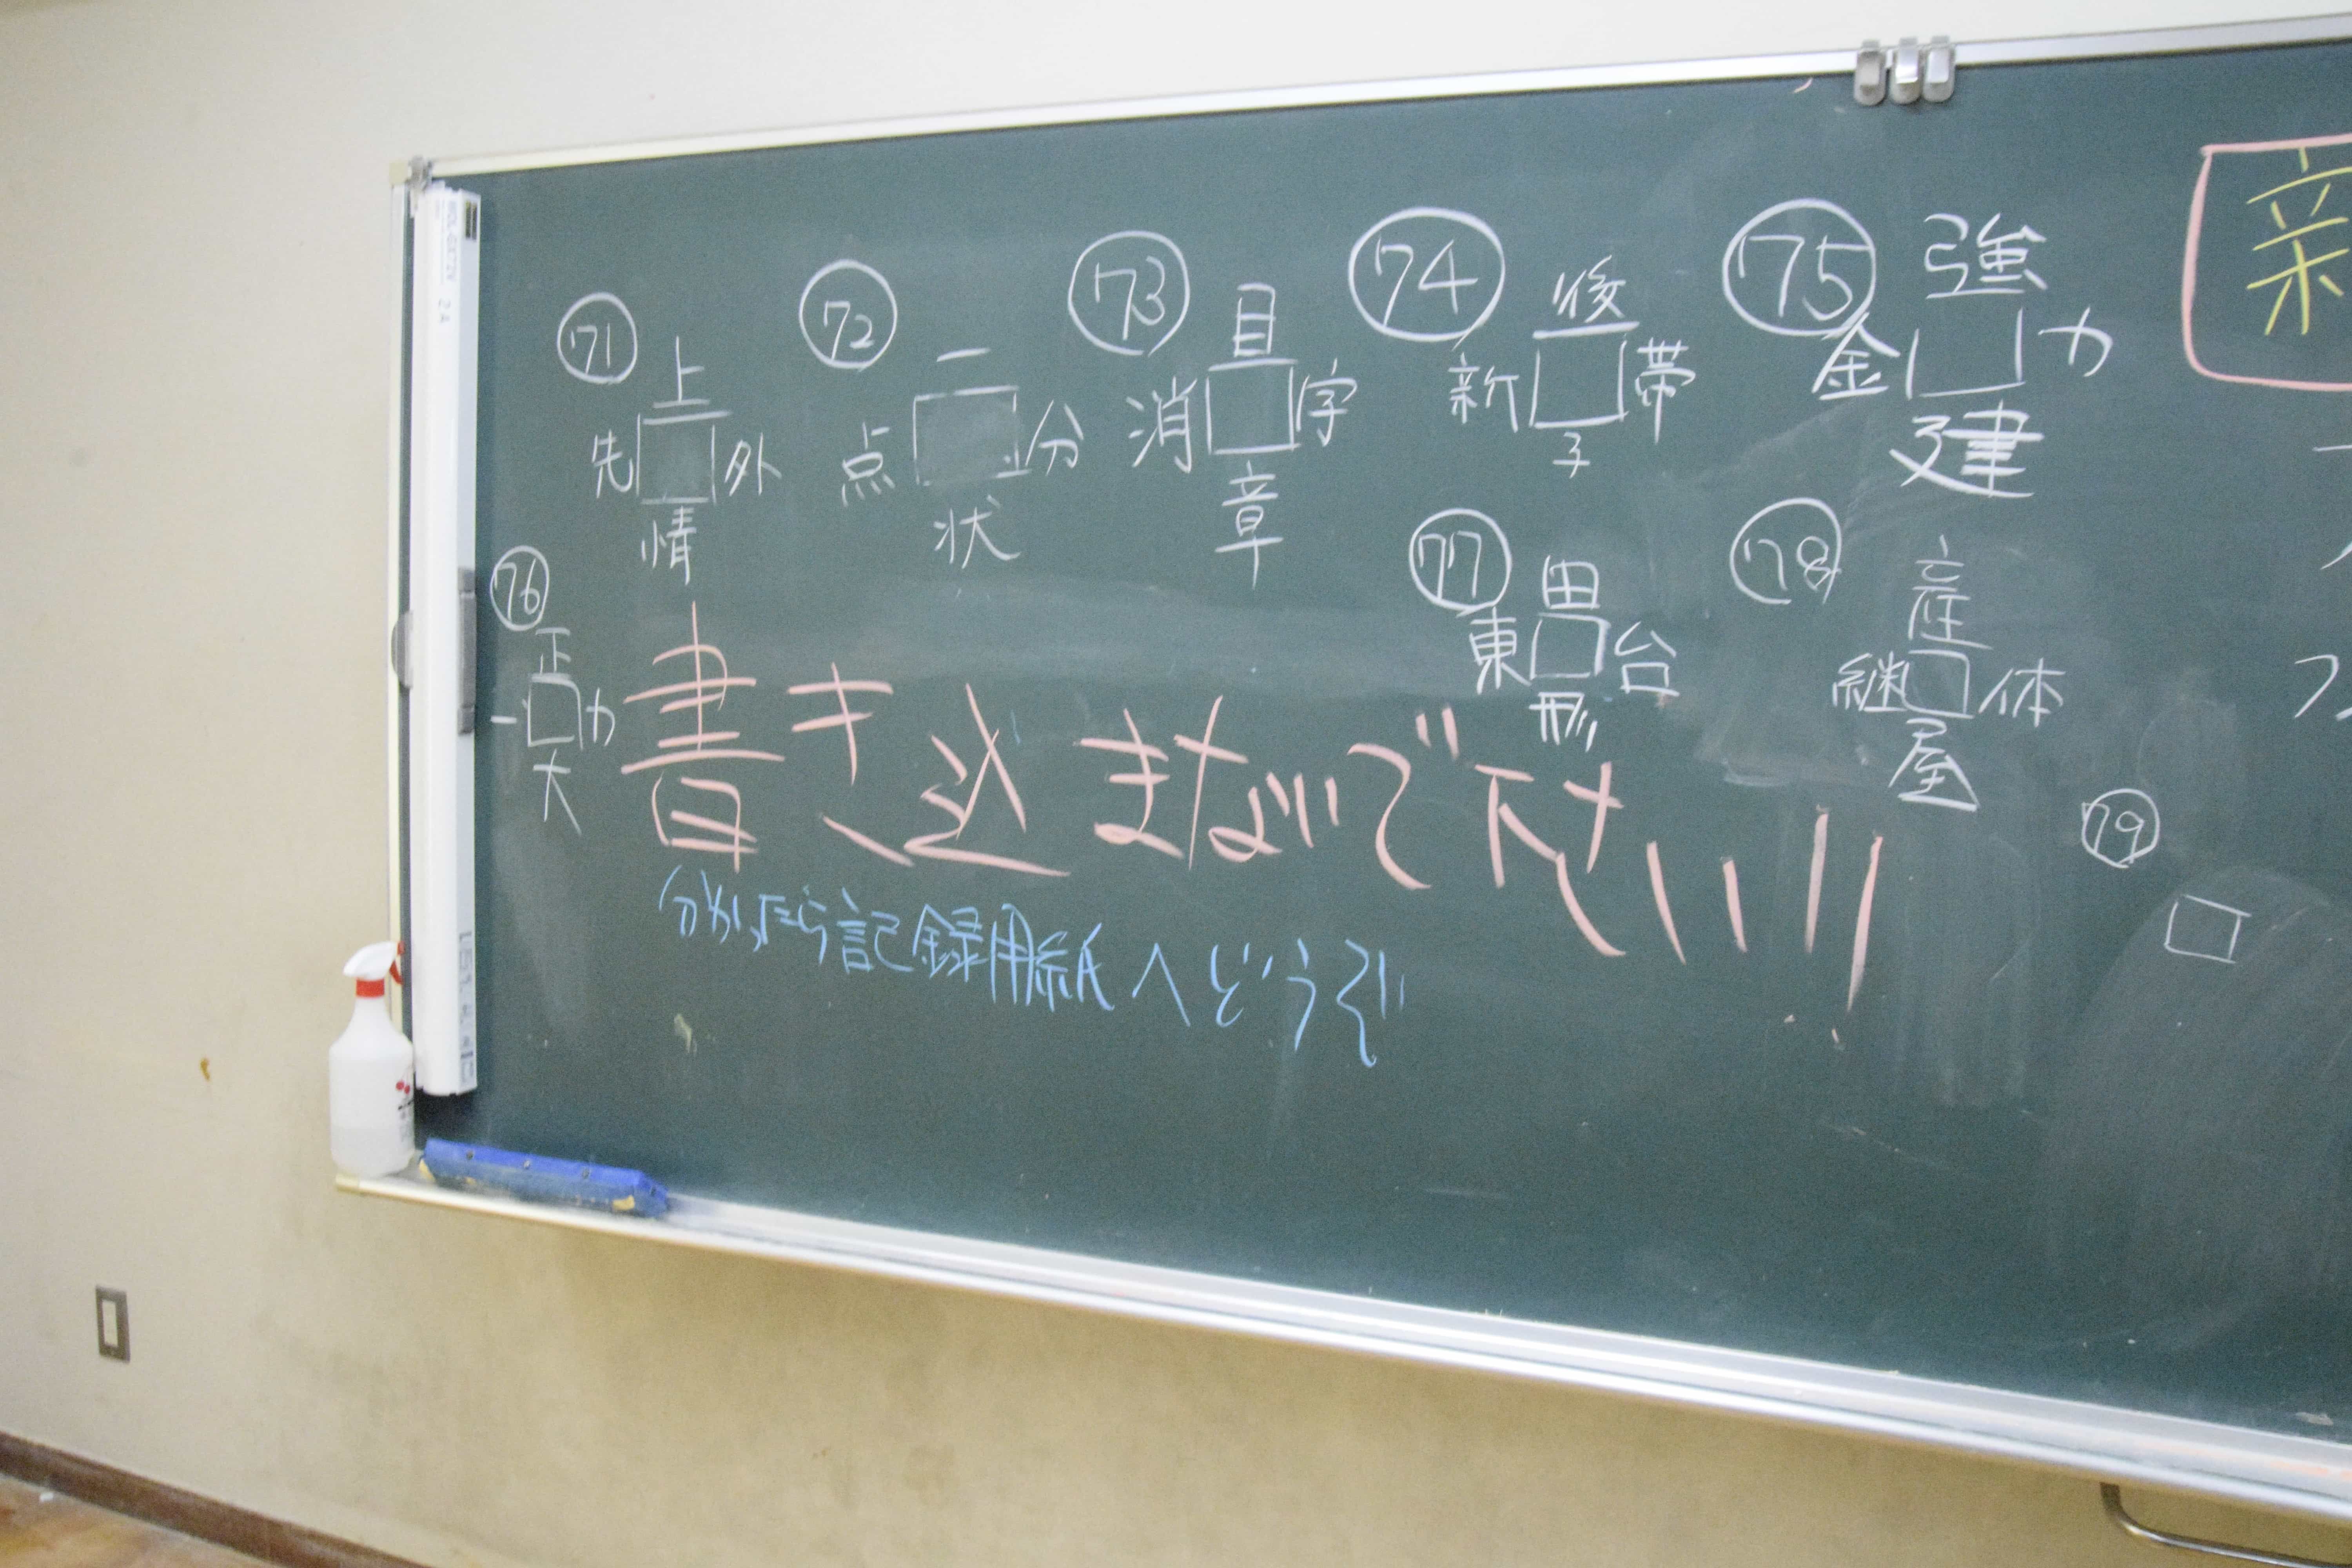 71
上
先 外
情
72
二
点 分
状
73
目
消 字
章
74
後
新 帯
子
75
強
金 力
建
76
正
一 力
大
77
田
東 台
形
78
産
継 体
屋
79
書き込まないで下さい!!
分かったら記録用紙へどうぞ